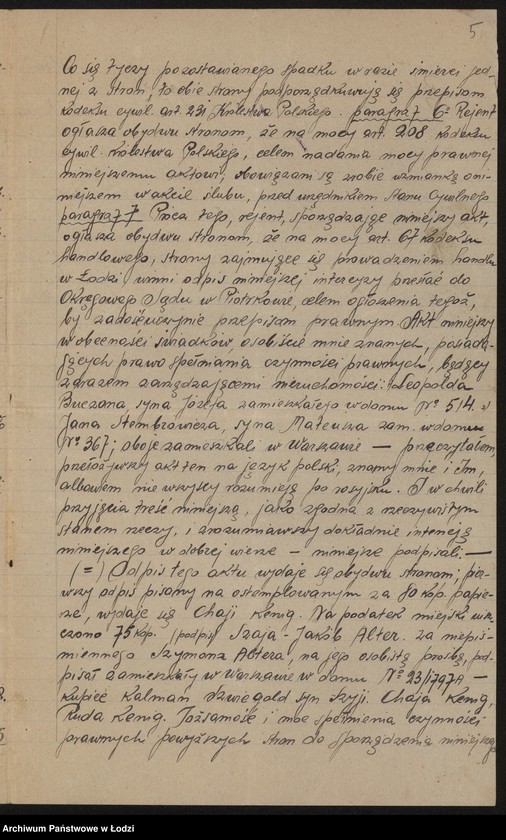 5
Co się tyczy pozostawianego spadku w razie śmierci jed-
nej z stron, to obie strony podporządkowują się przepisom
kodeksu cywil. art. 231 Królestwa Polskiego. paragraf 6. Rejent
ogłasza obydwu stronom, że na mocy art. 208 kodeksu
cywil. Królestwa Polskiego, celem nadania mocy prawnej
niniejszemu aktowi, obowiązani są zrobić wzmiankę o ni-
niejszem w akcie ślubu, przed urzędnikiem stanu cywilnego
paragraf 7 Prócz tego, rejent, sporządzając niniejszy akt,
ogłasza obydwu stronom, że na mocy art. 67 kodeksu
handlowego, strony zajmujące się prowadzeniem handlu
w Łodzi winni odpis niniejszej intercyzy przesłać do
Okręgowego Sądu w Piotrkowie, celem ogłoszenia tegoż,
by zadośćuczynić przepisom prawnym. Akt niniejszy
w obecności świadków, osobiście mnie znanych, posiada-
jących prawo spełniania czynności prawnych, będący
zarazem zarządzającemi nieruchomości: Leopolda
Buczona, syna Józefa zamieszkałego w domu № 514. i
Jana Stembrowicza, syna Mateusza zam. w domu
№ 367; oboje zamieszkali w Warszawie — przeczytałem,
przełożywszy akt ten na język polski, znany mnie i im,
albowiem nie wszyscy rozumieją po rosyjsku. I w chwili
przyjęcia treść niniejszą, jako zgodną z rzeczywistym
stanem rzeczy, i zrozumiawszy dokładnie intencję
niniejszego w dobrej wierze — niniejsze podpisali: —
(=) Odpis tego aktu wydaje się obydwu stronom; pier-
wszy odpis pisany na ostemplowanym za 80 kop. papie-
rze, wydaje się Chaji Kenig. Na podatek miejski wli-
czono 75 kop. (podpis) Szaja-Jakób Alter. za niepiś-
miennego Szymona Altera, na jego osobistą prośbę, pod-
pisał zamieszkały w Warszawie w domu № 23/1797A —
kupiec Kalman Szwiegold syn Szyji. Chaja Kenig,
Ruda Kenig. Tożsamość i moc spełnienia czynności
prawnych powyższych stron do sporządzenia niniejszego
Archiwum Państwowe w Łodzi